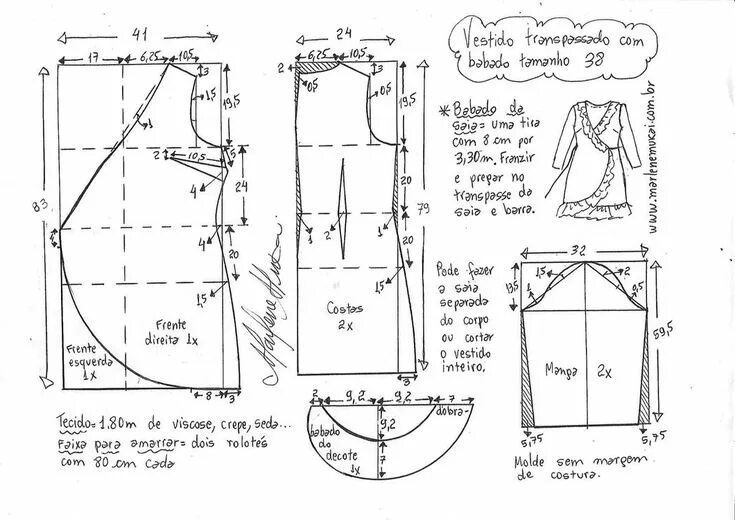 Vestido transpassado com
babado tamanho 38
41
17
6,25
10,5
3
1,5
19,5
1
2
10,5
5
4
24
83
4
4
20
1,5
Frente
direita 1x
Frente
esquerda
1x
8
3
Marlene Mukai
24
2
6,25
10,5
3
0,5
0,5
19,5
20
79
1
2
1
20
1,5
Costas
2x
3
* Babado da
saia = uma tira
com 8 cm por
3,30m. Franzir
e prepar no
transpasse da
saia e barra.
www.marlenemukai.com.br
Pode fazer
a saia
separada
do corpo
ou cortar
o vestido
inteiro.
32
13,5
1,5
2
1
0,5
59,5
Manga 2x
5,75
5,75
Molde sem margem
de costura.
Tecido = 1.80m de viscose, crepe, seda...
Faixa para amarrar = dois rolotés
com 80 cm cada
2
9,2
9,2
7
dobra
9,2
babado
do
decote
1x
7